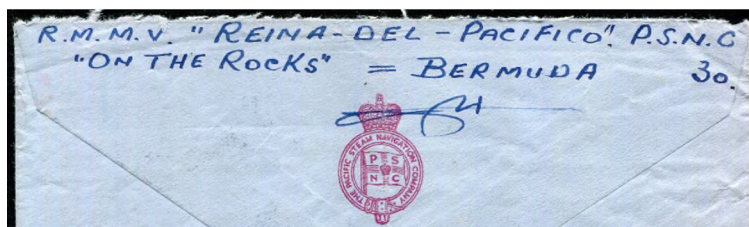 R.M.M.V. "REINA-DEL-PACIFICO". P.S.N.C
"ON THE ROCKS" = BERMUDA 30.
THE PACIFIC STEAM NAVIGATION COMPANY
P S
N C